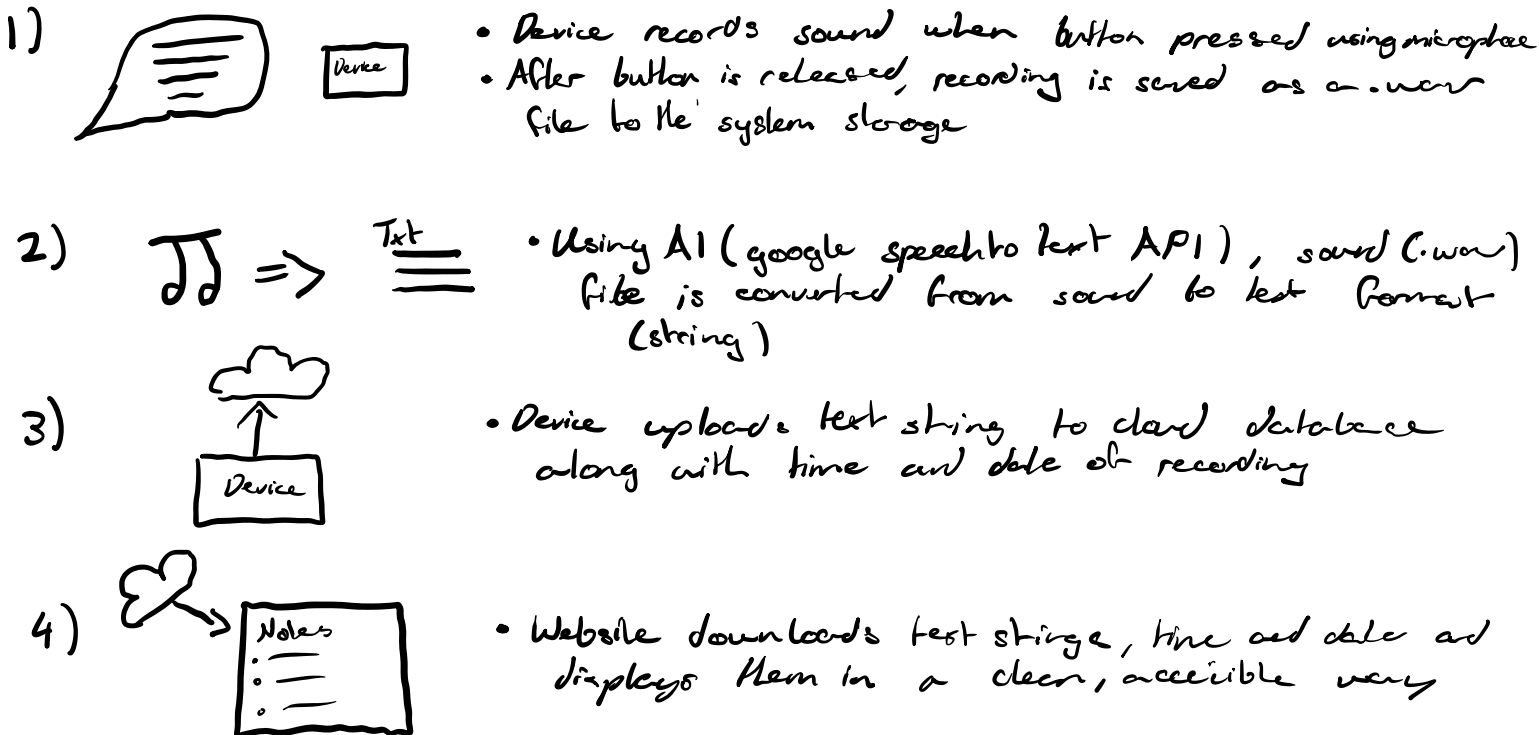 1)
Device
• Device records sound when button pressed using microphone
• After button is released, recording is saved as a .wav
file to the system storage
2)
Txt
• Using AI (google speech to text API), sound (.wav)
file is converted from sound to text format
(string)
3)
Device
• Device uploads text string to cloud database
along with time and date of recording
4)
Notes
• Website downloads text strings, time and date and
displays them in a clean, accessible way